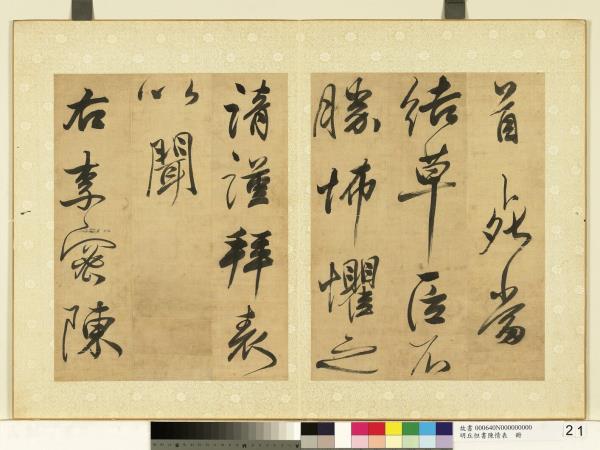 首死當
結草臣不
勝怖懼之
情謹拜表
以聞
右李密陳
故書 000640N000000000
明丘恒書陳情表 冊
21